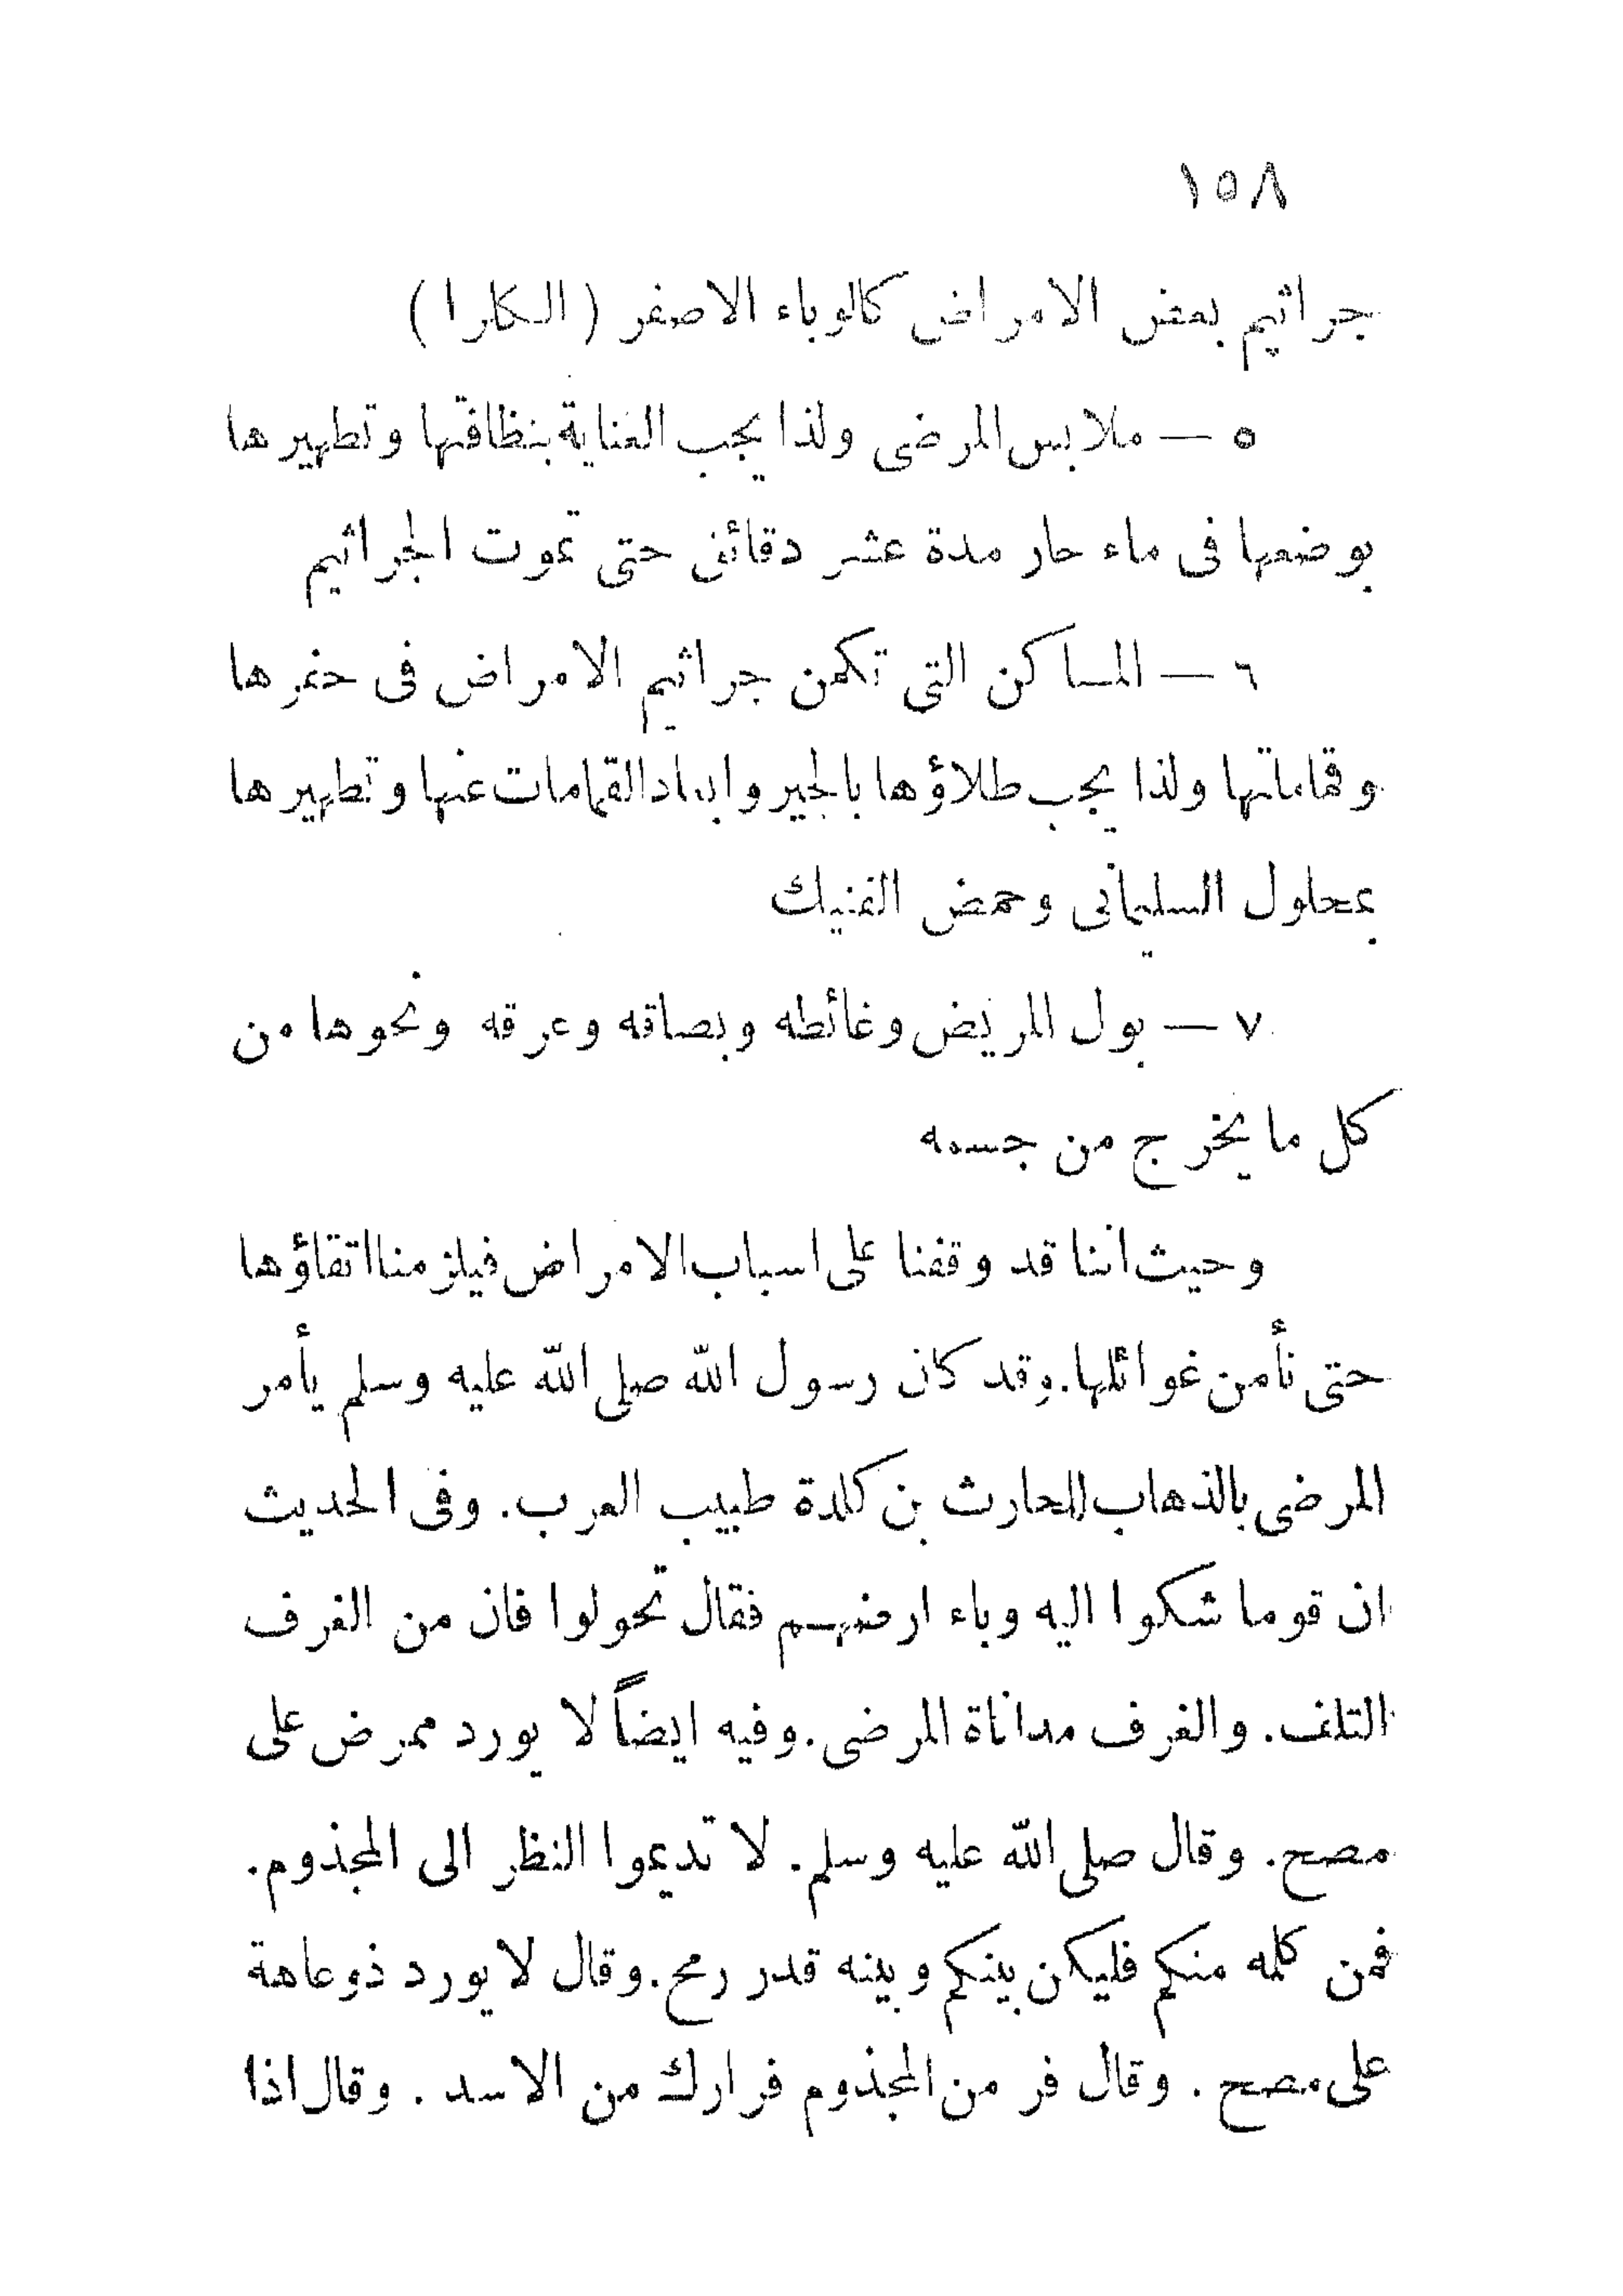 ١٥٨
جراثيم بعض الامراض كالوباء الاصفر (الكلرا)
٥ — ملابس المرضى ولذا يجب العناية بنظافتها وتطهيرها
بوضعها فى ماء حار مدة عشر دقائق حتى تموت الجراثيم
٦ — المساكن التى تكمن جراثيم الامراض فى حفرها
وقماماتها ولذا يجب طلاؤها بالجير وابعاد القمامات عنها وتطهيرها
بمحلول السليمانى وحمض الفنيك
٧ — بول المريض وغائطه وبصاقه وعرقه ونحوها من
كل ما يخرج من جسمه
وحيث اننا قد وقفنا على اسباب الامراض فيلزمنا اتقاؤها
حتى نأمن غوائلها. وقد كان رسول الله صلى الله عليه وسلم يأمر
المرضى بالذهاب للحارث بن كلدة طبيب العرب. وفى الحديث
ان قوما شكوا اليه وباء ارضهم فقال تحولوا فان من القرف
التلف. والقرف مداناة المرضى. وفيه ايضاً لا يورد ممرض على
مصح. وقال صلى الله عليه وسلم. لا تديموا النظر الى المجذوم.
فمن كلمه منكم فليكن بينكم وبينه قدر رمح. وقال لا يورد ذو عاهة
على مصح. وقال فر من المجذوم فرارك من الاسد. وقال اذا